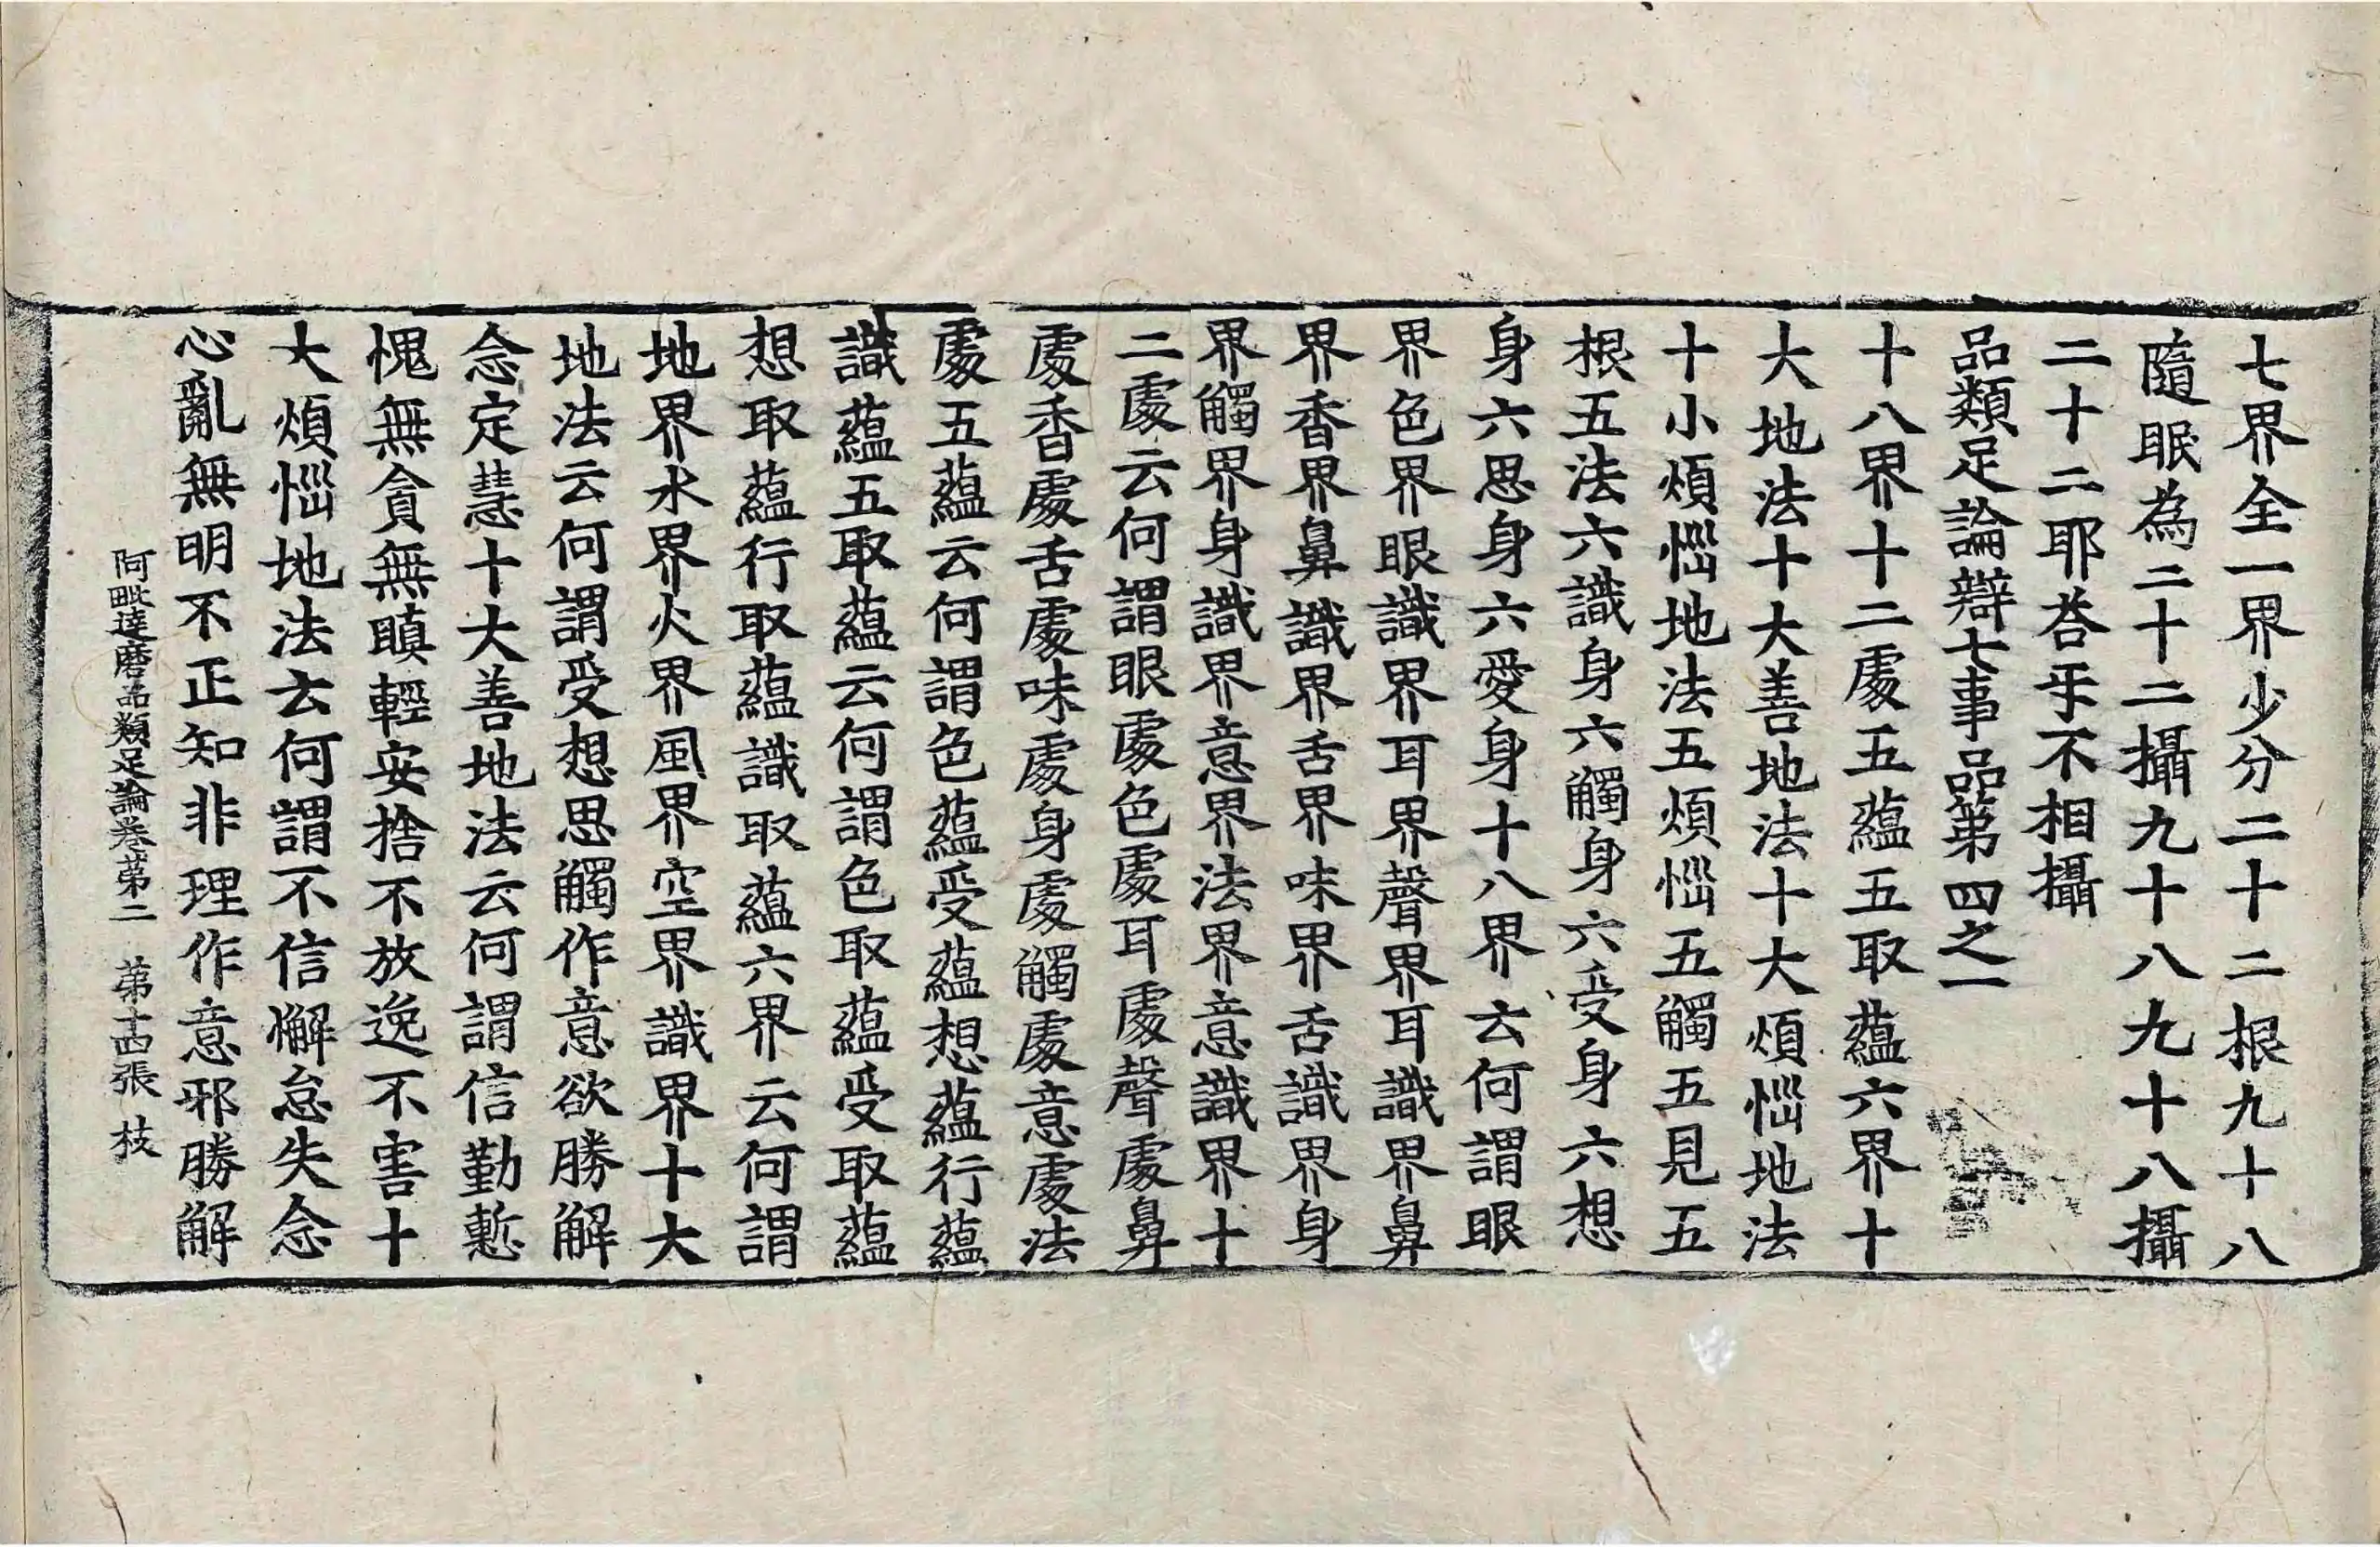 七界全一界少分二十二根九十八
隨眠為二十二攝九十八九十八攝
二十二耶荅乎不相攝
品類足論辯七事品第四之一
十八界十二處五蘊五取蘊六界十
大地法十大善地法十大煩惱地法
十小煩惱地法五煩惱五觸五見五
根五法六識身六觸身六受身六想
身六思身六愛身十八界云何謂眼
界色界眼識界耳界聲界耳識界鼻
界香界鼻識界舌界味界舌識界身
界觸界身識界意界法界意識界十
二處云何謂眼處色處耳處聲處鼻
處香處舌處味處身處觸處意處法
處五蘊云何謂色蘊受蘊想蘊行蘊
識蘊五取蘊云何謂色取蘊受取蘊
想取蘊行取蘊識取蘊六界云何謂
地界水界火界風界空界識界十大
地法云何謂受想思觸作意欲勝解
念定慧十大善地法云何謂信勤慙
愧無貪無瞋輕安捨不放逸不害十
大煩惱地法云何謂不信懈怠失念
心亂無明不正知非理作意邪勝解
阿毗達磨品類足論卷苐二 苐十四張 枝